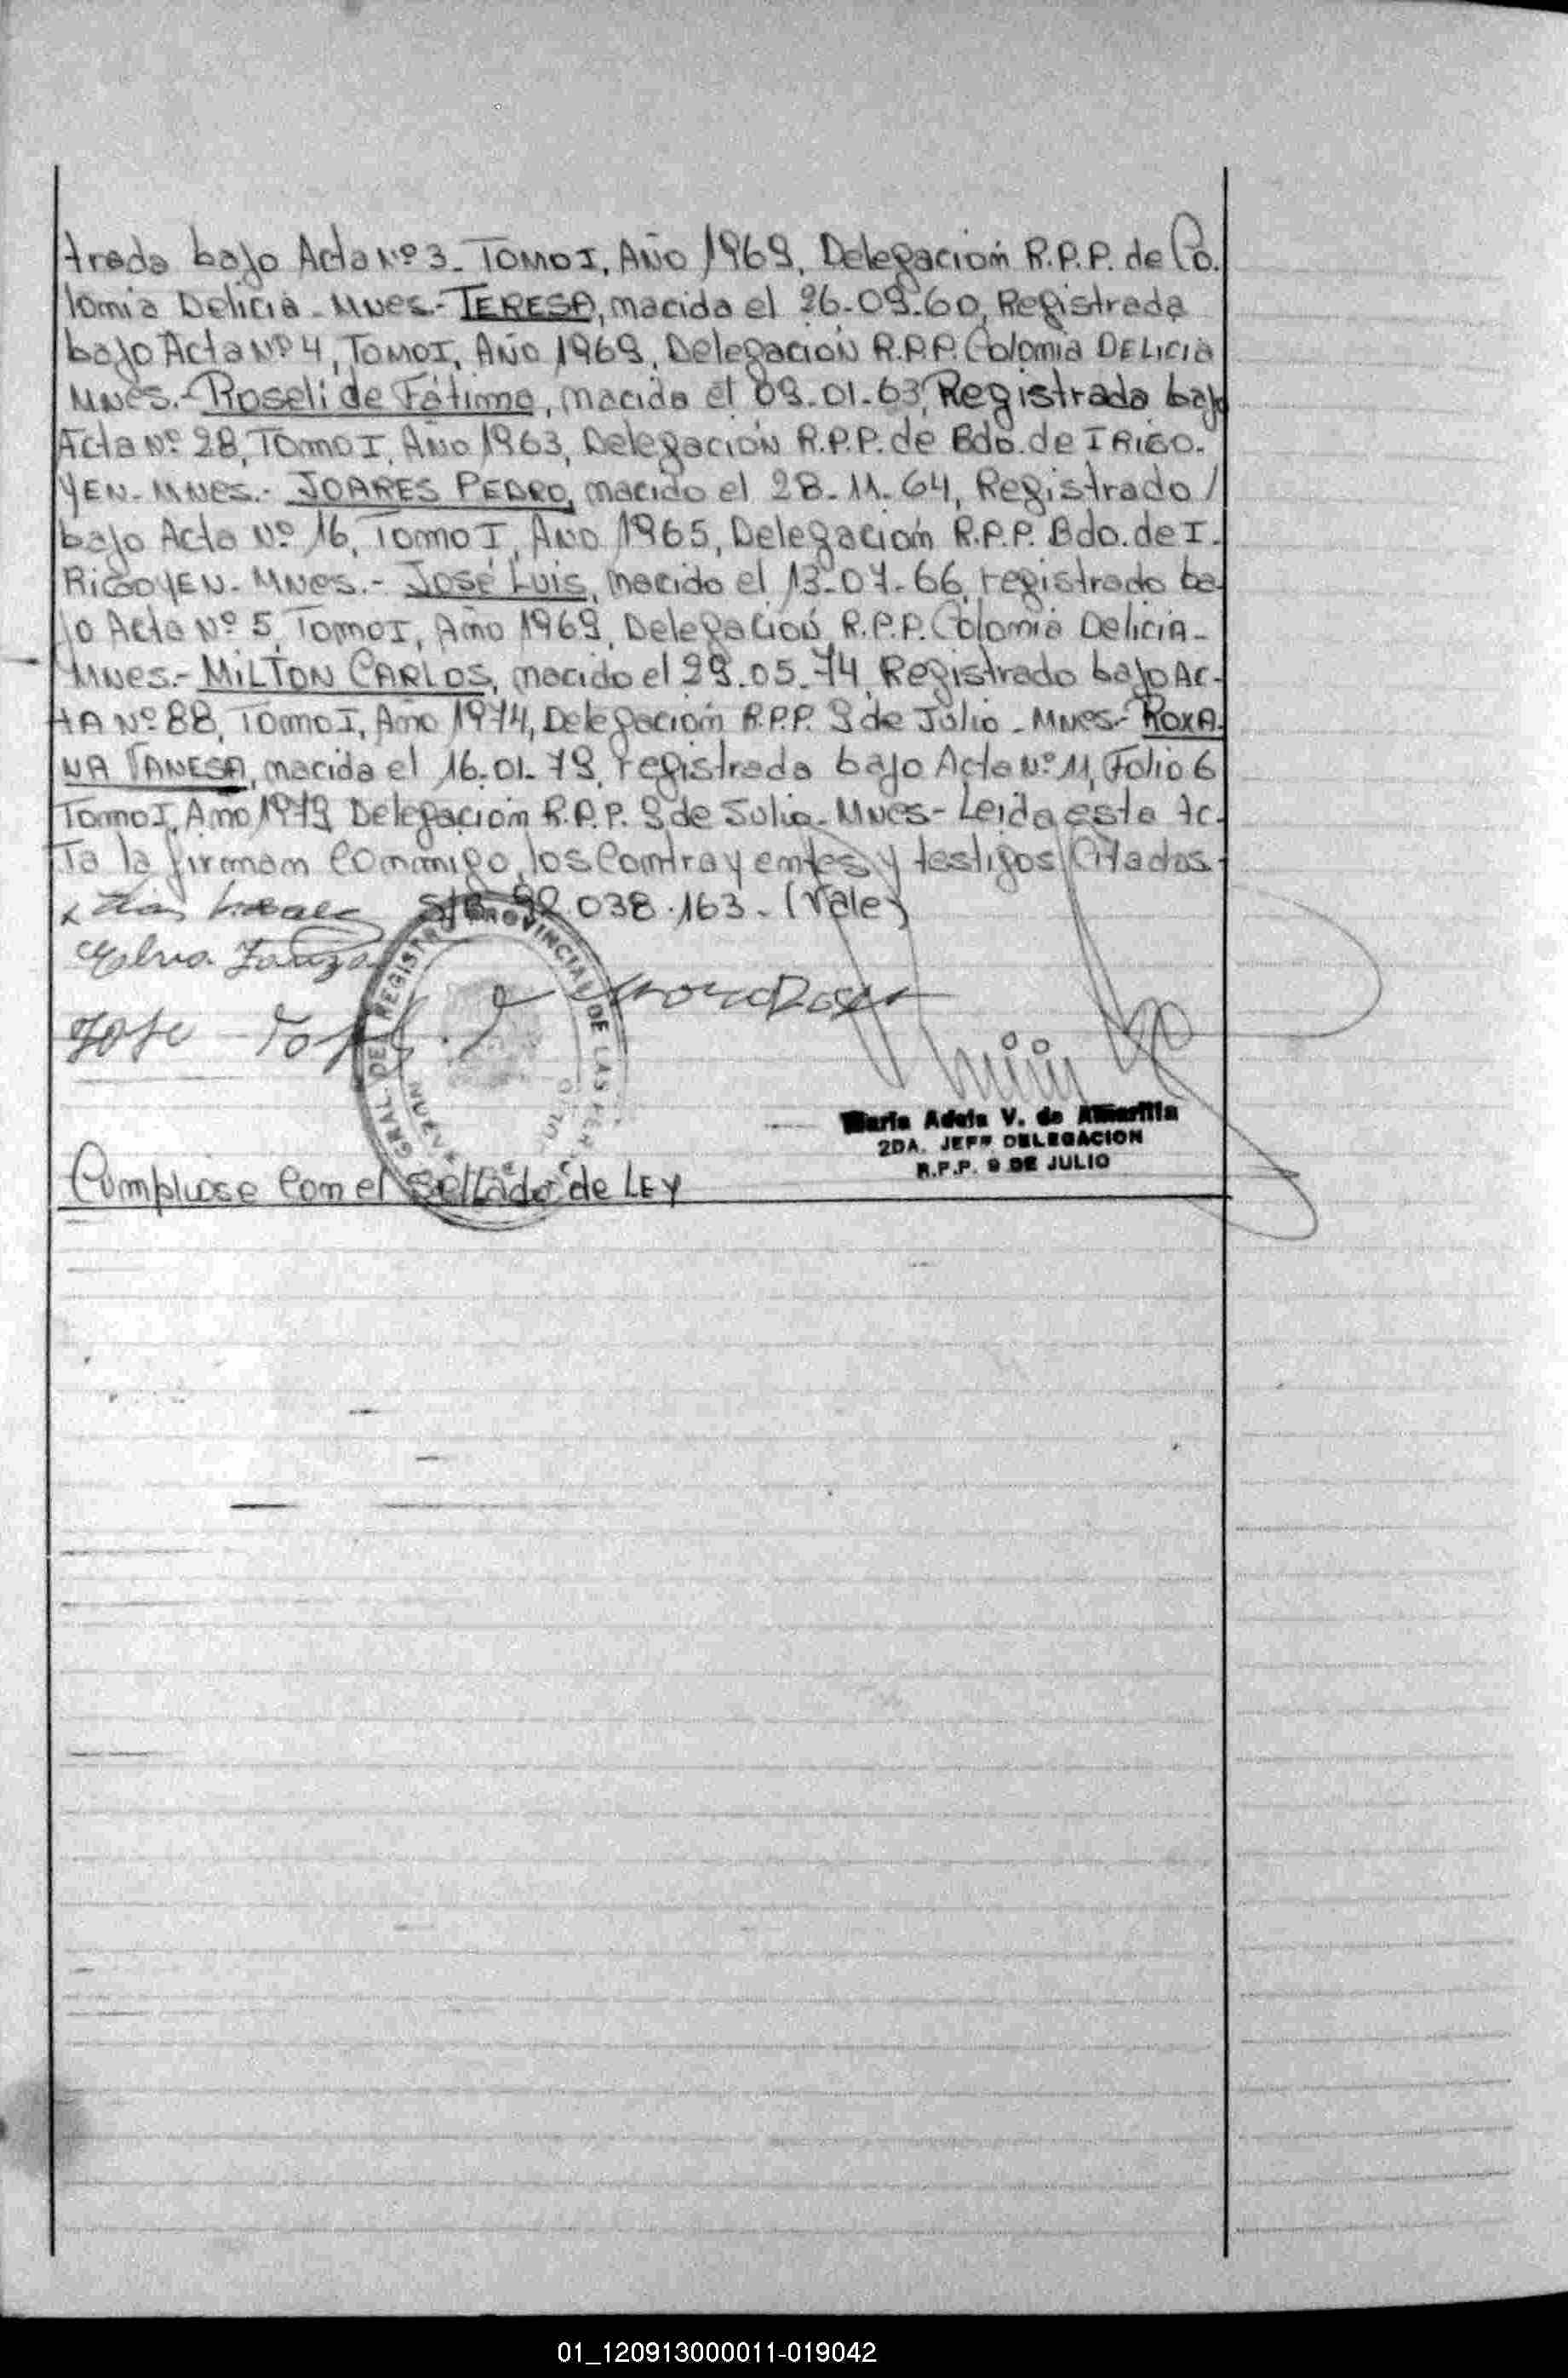 trada bajo Acta Nº 3- TOMO I, Año 1969, Delegación R.P.P. de Co-
lonia Delicia - Mnes.- TERESA, nacida el 26-09-60, Registrada
bajo Acta Nº 4, TOMO I, Año 1969, Delegación R.P.P. Colonia DELICIA
Mnes.- Roseli de Fátima, nacida el 09-01-63, Registrada bajo
Acta Nº 28, Tomo I, Año 1963, Delegación R.P.P. de Bdo. de IRIGO-
YEN- Mnes.- JOARES PEDRO, nacido el 28-11-64, Registrado /
bajo Acta Nº 16, Tomo I, Año 1965, Delegación R.P.P. Bdo. de I-
RIGOYEN- Mnes.- José Luis, nacido el 13-07-66, registrado ba-
jo Acta Nº 5, Tomo I, Año 1969, Delegación R.P.P. Colonia Delicia-
Mnes.- MILTON CARLOS, nacido el 29.05.74, Registrado bajo AC-
TA Nº 88, Tomo I, Año 1974, Delegación R.P.P. 9 de Julio - Mnes- ROXA-
NA VANESA, nacida el 16-01-79, registrada bajo Acta Nº 11, Folio 6
Tomo I, Año 1979 Delegación R.P.P. 9 de Julio- Mnes- Leida esta Ac-
Ta la firman conmigo, los Contrayentes y testigos Citados-
038.163- (Vale)
Elva
Jose
GRAL. DEL REGISTRO PROVINCIAL DE LAS
Maria Adela V. de Amarilla
2DA. JEFE DELEGACION
R.P.P. 9 DE JULIO
Cumpliose con el Sellado de LEY
01_120913000011-019042